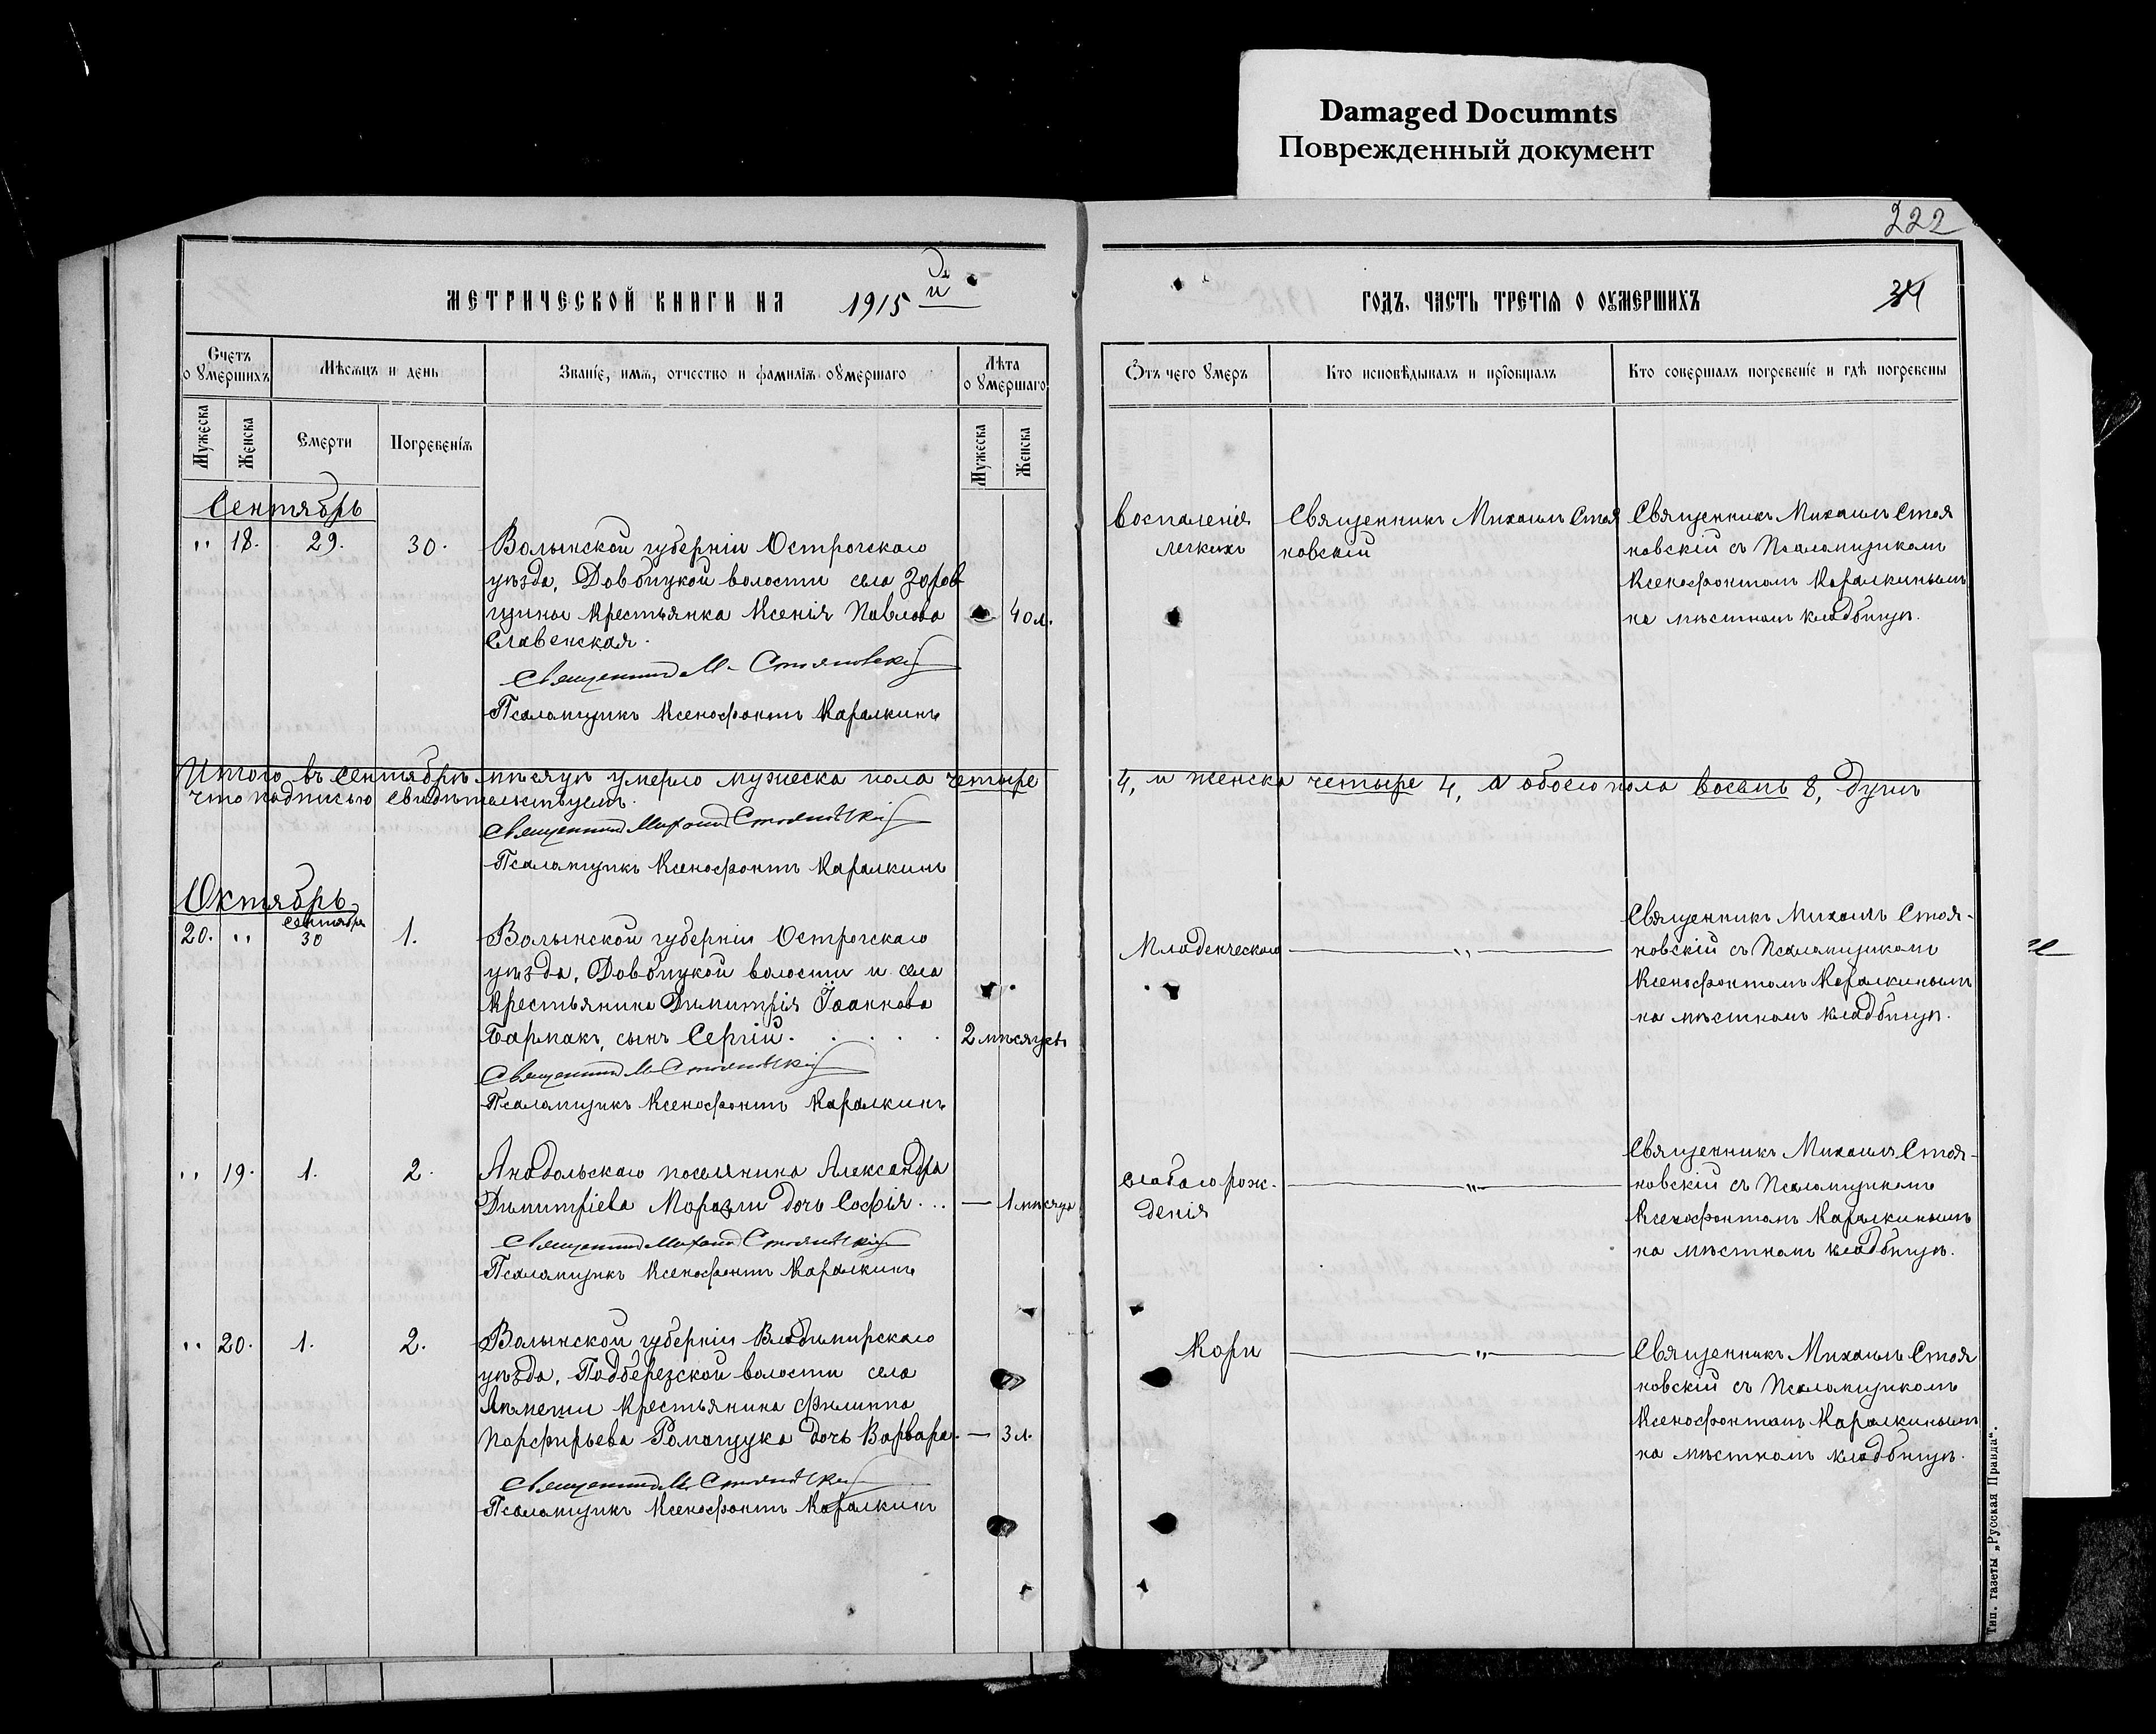 Damaged Documnts
Поврежденный документ
222
МЕТРИЧЕСКОЙ КНИГИ НА 1915 й
ГОДЪ, ЧАСТЬ ТРЕТІЯ О ОУМЕРШИХЪ
34
Счетъ оумершихъ
Мѣсяцъ и день
Званіе, имя, отчество и фамилія оумершаго
Лѣта оумершаго
Мужеска
Женска
Смерти
Погребенія
Мужеска
Женска
Отъ чего умеръ
Кто исповѣдывалъ и пріобщалъ
Кто совершалъ погребеніе и гдѣ погребены
Сентябрь
„ 18. 29. 30.
Волынской губерніи Острогскаго
уѣзда, Довбицкой волости села Зоров
щины крестьянка Ксенія Павлова
Славенская.
40 л.
Священникъ М. Стояновскій
Псаломщикъ Ксенофонтъ Каралкинъ
воспаленія
легкихъ
Священникъ Михаилъ Стоя
новскій
Священникъ Михаилъ Стоя
новскій съ Псаломщикомъ
Ксенофонтомъ Каралкинымъ
на мѣстномъ кладбищѣ.
Итого въ сентябрѣ мѣсяцѣ умерло мужеска пола четыре
4, и женска четыре 4, а обоего пола восемь 8, душъ
что подписью свидѣтельствуемъ.
Священникъ Михаилъ Стояновскій
Псаломщикъ Ксенофонтъ Каралкинъ
Октябрь
20. „ сентября 30 1.
Волынской губерніи Острогскаго
уѣзда, Довбицкой волости и села
крестьянина Димитрія Іоаннова
Бармакъ, сынъ Сергій. . . . . .
2 мѣсяцевъ
Священникъ М. Стояновскій
Псаломщикъ Ксенофонтъ Каралкинъ
Младенческаго
„
Священникъ Михаилъ Стоя-
новскій съ Псаломщикомъ
Ксенофонтомъ Каралкинымъ
на мѣстномъ кладбищѣ.
„ 19. 1. 2.
Анадольскаго поселянина Александра
Димитріева Моразли дочь Софія . . .
— 1 мѣсяца
Священникъ Михаилъ Стояновскій
Псаломщикъ Ксенофонтъ Каралкинъ
слабаго рож-
денія
„
Священникъ Михаилъ Стоя-
новскій съ Псаломщикомъ
Ксенофонтомъ Каралкинымъ
на мѣстномъ кладбищѣ.
„ 20. 1. 2.
Волынской губерніи Владимирскаго
уѣзда, Подберезской волости села
крестьянина Филиппа
Порфирьева Ромащука дочь Варвара.
— 3 л.
Священникъ М. Стояновскій
Псаломщикъ Ксенофонтъ Каралкинъ
Кори
„
Священникъ Михаилъ Стоя
новскій съ Псаломщикомъ
Ксенофонтомъ Каралкинымъ
на мѣстномъ кладбищѣ.
Тип. газеты „Русская Правда“.